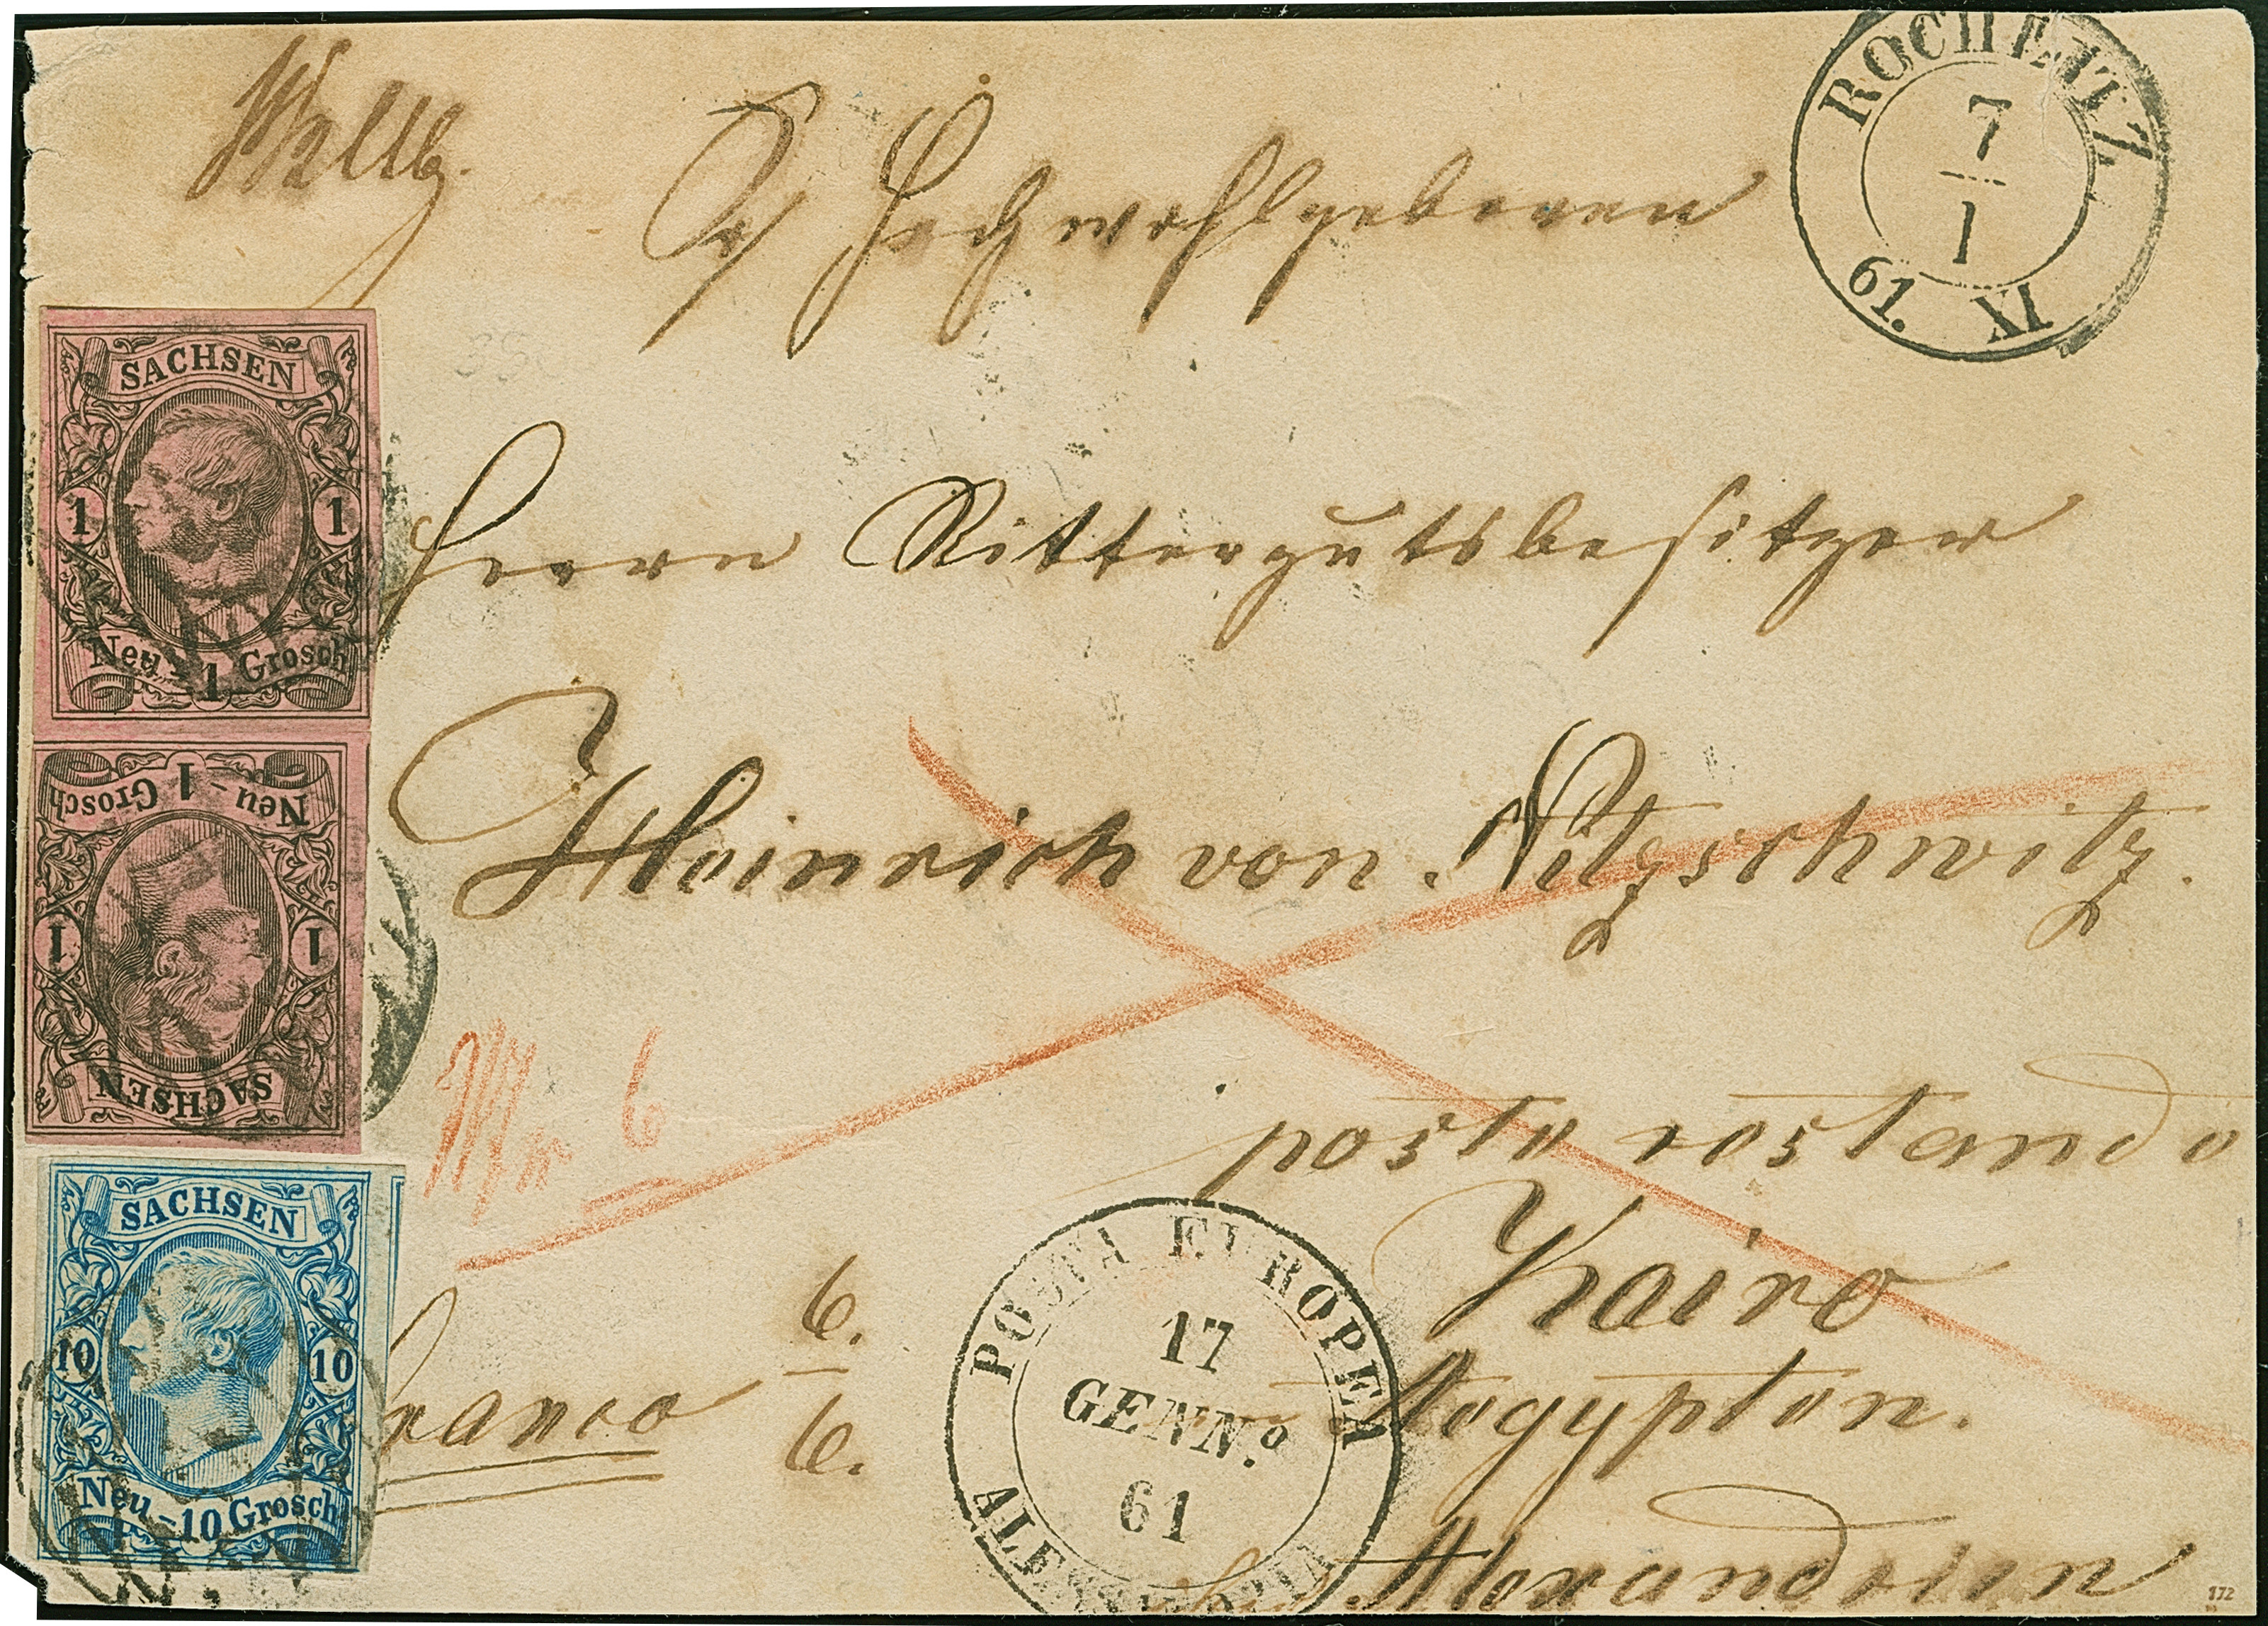 ROCHLITZ
7
1
61. XI
Sr. Hochwohlgeboren
SACHSEN
1 1
Neu-1 Grosch
Herrn Rittergutsbesitzer
Neu-1 Grosch
1 1
SACHSEN
Heinrich von Nitzschwitz.
6
poste restante
SACHSEN
10 10
Neu-10 Grosch
Kairo
franco 6.
6.
Aegypten.
POSTA EUROPEA
17
GENN.º
61
ALESSANDRIA
Alexandrien
172